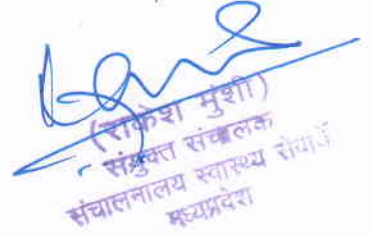 (राकेश मुंशी)
संयुक्त संचालक
संचालनालय स्वास्थ्य सेवायें
मध्यप्रदेश